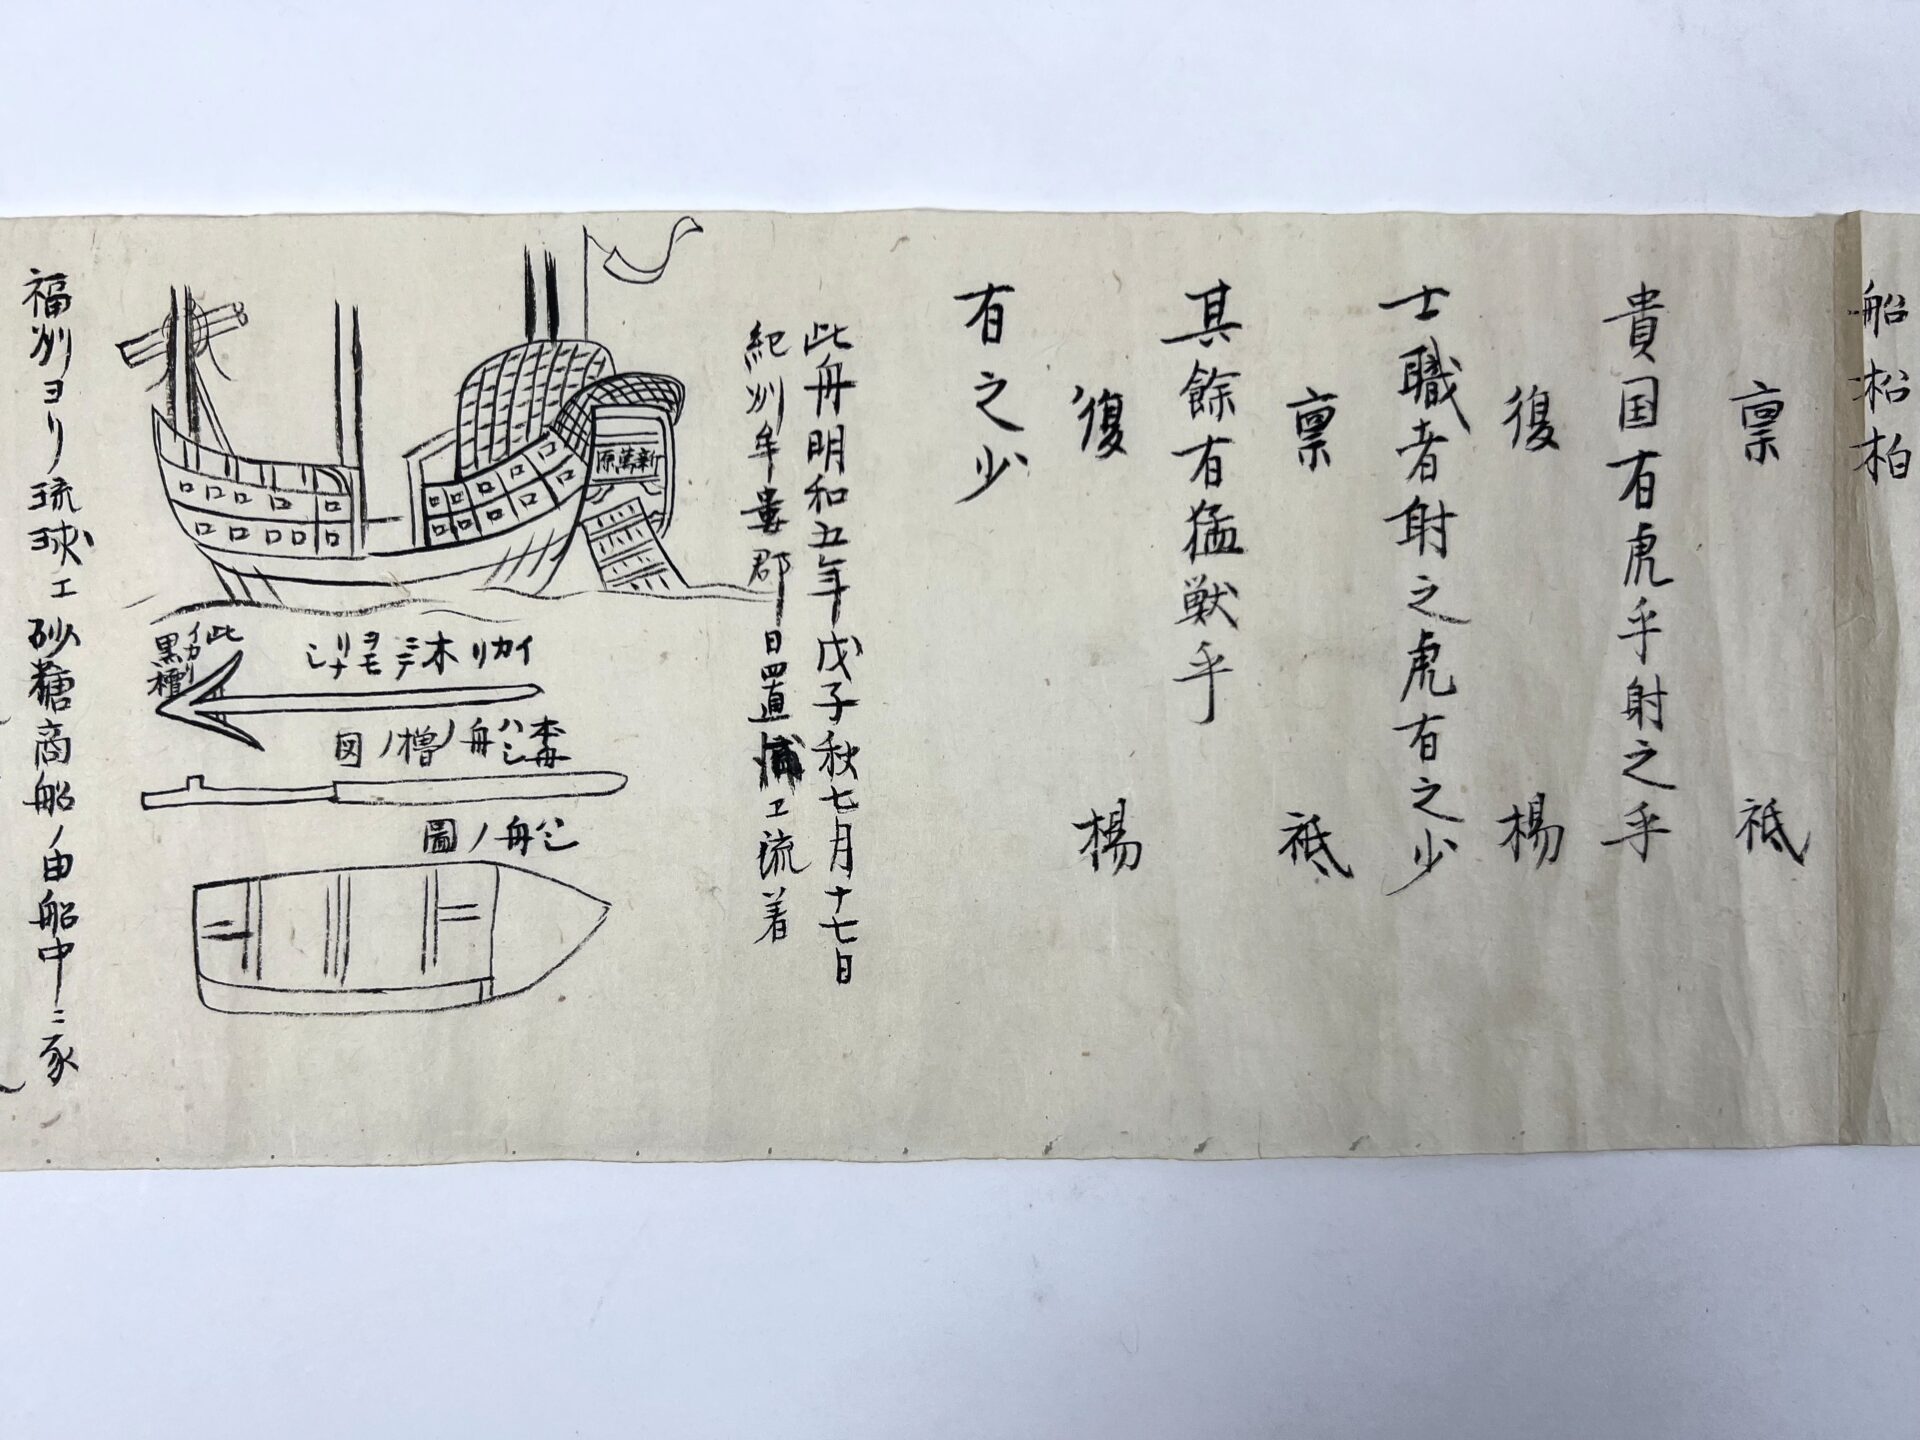 船松柏
稟 祗
貴国有虎乎射之乎
復 楊
士職者射之虎有之少
稟 祗
其餘有猛獣乎
復 楊
有之少
此舟明和五年戊子秋七月十七日
紀州牟婁郡日置浦エ流着
新萬原
イカリ木ニテヲモリナシ
此イカリ黒檀
本舟ハシ舟ノ櫓ノ図
ハシ舟ノ圖
福州ヨリ琉球エ砂糖商船ノ由船中ニ豕